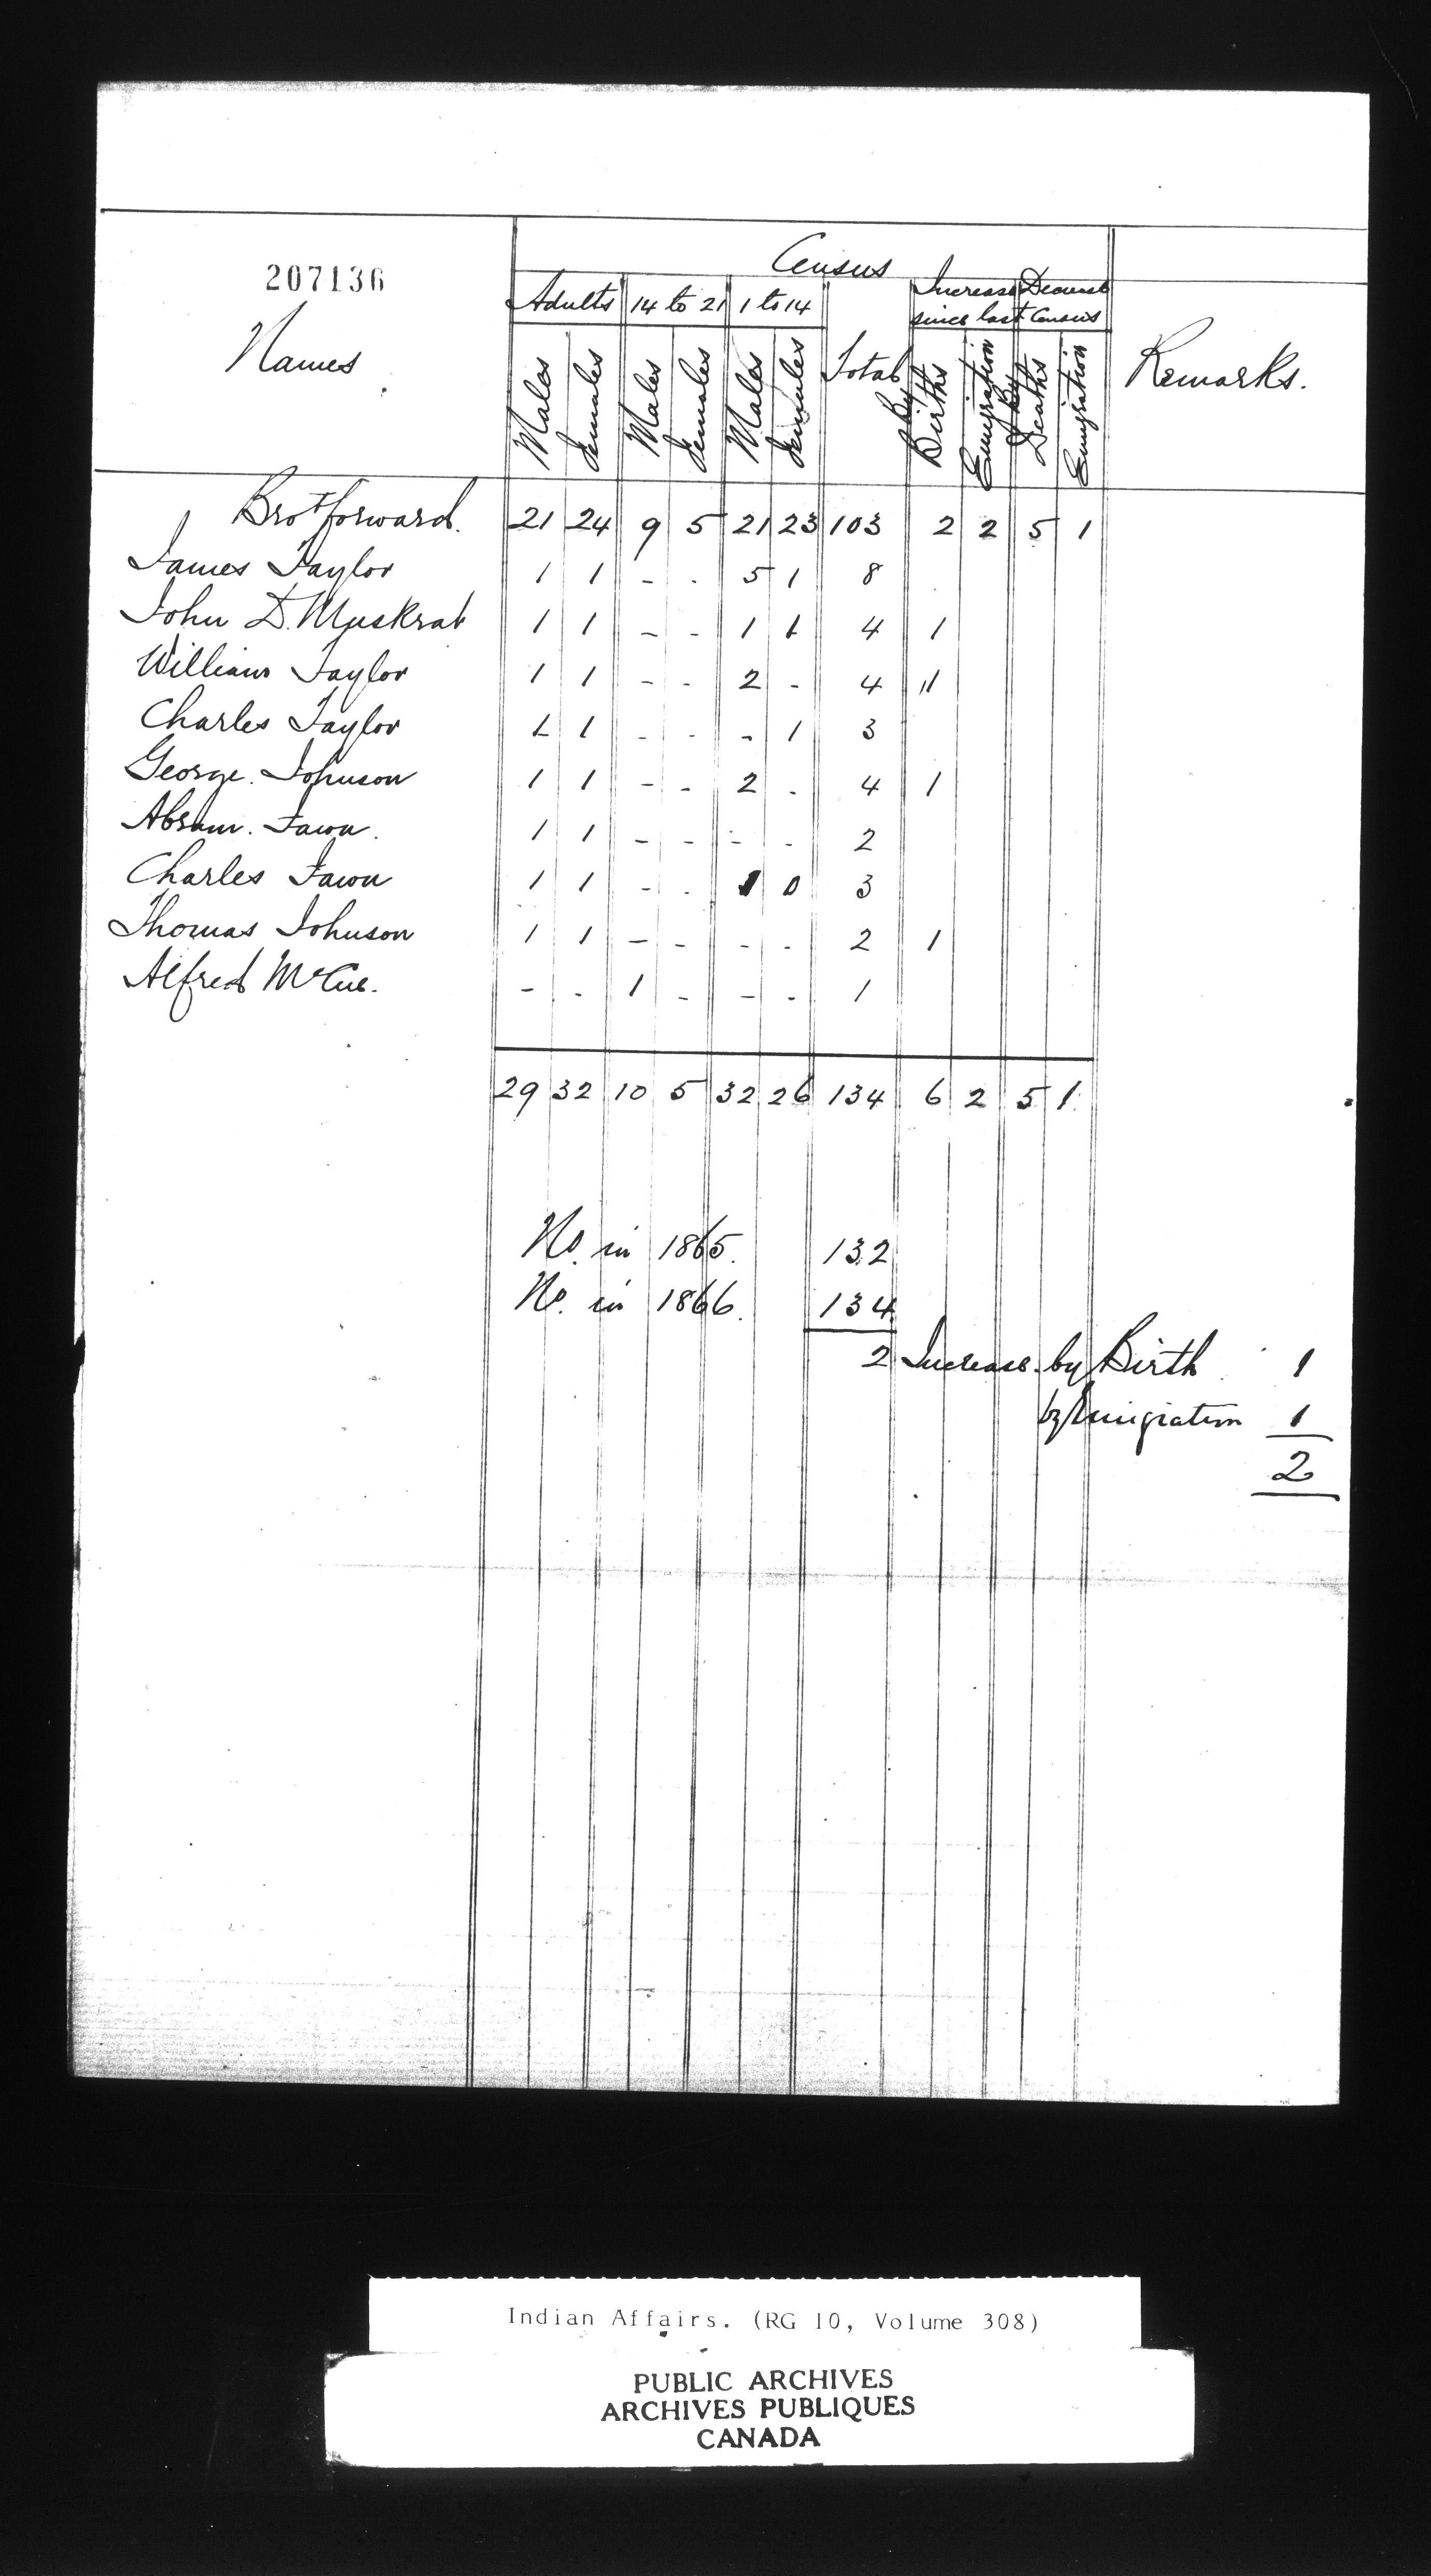 Census
207136
Adults 14 to 21 1 to 14 Increase Decrease
since last Census
Names Males Females Males Females Males Females Total By Births Emigration By Deaths Emigration Remarks.
Brot forward. 21 24 9 5 21 23 103 2 2 5 1
James Taylor 1 1 - - 5 1 8
John D. Muskrat 1 1 - - 1 1 4 1
William Taylor 1 1 - - 2 - 4 11
Charles Taylor 1 1 - - - 1 3
George Johnson 1 1 - - 2 - 4 1
Abram. Fawn. 1 1 - - - - 2
Charles Fawn 1 1 - - 1 0 3
Thomas Johnson 1 1 - - - - 2 1
Alfred McCue. - - 1 - - - 1
29 32 10 5 32 26 134 6 2 5 1
No. in 1865. 132
No. in 1866. 134
2 Increase by Birth 1
by Emigration 1
2
Indian Affairs. (RG 10, Volume 308)
PUBLIC ARCHIVES
ARCHIVES PUBLIQUES
CANADA